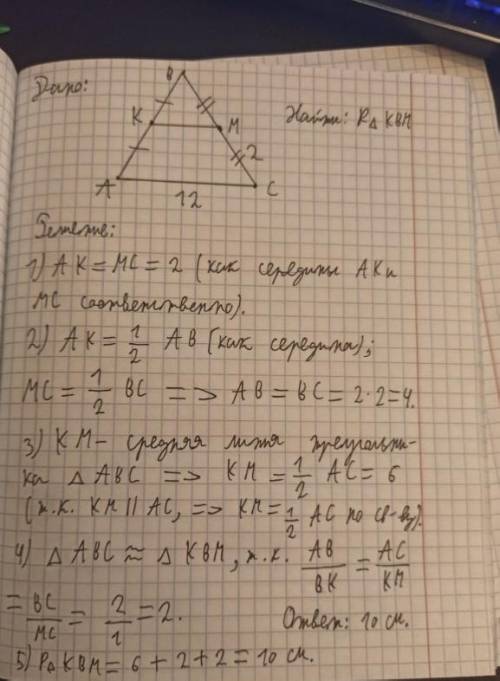 Дано:
B
K
M
2
A
C
12
Найти: P△ KBM
Решение:
1) AK = MC = 2 (как середины AK и
MC соответственно).
2) AK = 1/2 AB (как середина);
MC = 1/2 BC => AB = BC = 2·2=4.
3) KM - средняя линия треугольни-
ка △ ABC => KM = 1/2 AC = 6
(т.к. KM || AC, => KM = 1/2 AC по св-ву).
4) △ ABC ≈ △ KBM, т.к. AB/BK = AC/KM
= BC/MC = 2/1 = 2.
Ответ: 10 см.
5) P△ KBM = 6 + 2 + 2 = 10 см.